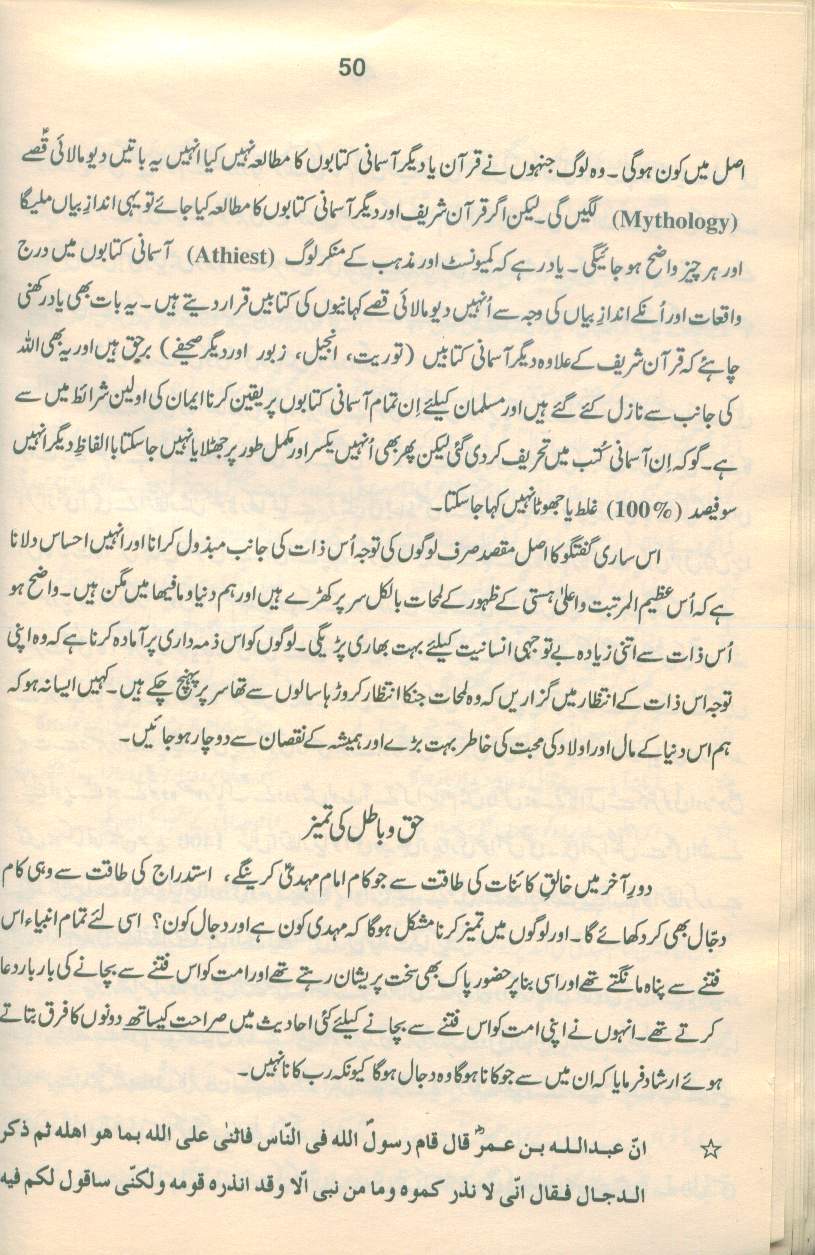 50
اصل میں کون ہوگی ۔ وہ لوگ جنہوں نے قرآن یا دیگر آسمانی کتابوں کا مطالعہ نہیں کیا انہیں یہ باتیں دیومالائی قصّے
(Mythology) لگیں گی ۔ لیکن اگر قرآن شریف اور دیگر آسمانی کتابوں کا مطالعہ کیا جائے تو یہی اندازِ بیاں ملیگا
اور ہر چیز واضح ہو جائیگی ۔ یاد رہے کہ کمیونسٹ اور مذہب کے منکر لوگ (Athiest) آسمانی کتابوں میں درج
واقعات اور اُنکے اندازِ بیاں کی وجہ سے اُنہیں دیومالائی قصے کہانیوں کی کتابیں قرار دیتے ہیں ۔ یہ بات بھی یاد رکھنی
چاہئے کہ قرآن شریف کے علاوہ دیگر آسمانی کتابیں (توریت، انجیل، زبور اور دیگر صحیفے) برحق ہیں اور یہ بھی اللہ
کی جانب سے نازل کئے گئے ہیں اور مسلمان کیلئے اِن تمام آسمانی کتابوں پر یقین کرنا ایمان کی اولین شرائط میں سے
ہے ۔ گو کہ اِن آسمانی کُتب میں تحریف کردی گئی لیکن پھر بھی اُنہیں یکسر اور مکمل طور پر جھٹلایا نہیں جاسکتا با الفاظِ دیگر انہیں
سو فیصد (100%) غلط یا جھوٹا نہیں کہا جاسکتا ۔
اس ساری گفتگو کا اصل مقصد صرف لوگوں کی توجہ اُس ذات کی جانب مبذول کرانا اور انہیں احساس دلانا
ہے کہ اُس عظیم المرتبت و اعلیٰ ہستی کے ظہور کے لمحات بالکل سر پر کھڑے ہیں اور ہم دنیا و مافیھا میں مگن ہیں ۔ واضح ہو
اُس ذات سے اتنی زیادہ بے توجہی انسانیت کیلئے بہت بھاری پڑیگی ۔ لوگوں کو اس ذمہ داری پر آمادہ کرنا ہے کہ وہ اپنی
توجہ اس ذات کے انتظار میں گزاریں کہ وہ لمحات جنکا انتظار کروڑہا سالوں سے تھا سر پر پہنچ چکے ہیں ۔ کہیں ایسا نہ ہو کہ
ہم اس دنیا کے مال اور اولاد کی محبت کی خاطر بہت بڑے اور ہمیشہ کے نقصان سے دوچار ہو جائیں ۔
حق و باطل کی تمیز
دورِ آخر میں خالقِ کائنات کی طاقت سے جو کام امام مہدیؑ کرینگے ، استدراج کی طاقت سے وہی کام
دجّال بھی کر دکھائے گا ۔ اور لوگوں میں تمیز کرنا مشکل ہوگا کہ مہدی کون ہے اور دجال کون ؟ اسی لئے تمام انبیاء اس
فتنے سے پناہ مانگتے تھے اور اسی بنا پر حضور پاک بھی سخت پریشان رہتے تھے اور امت کو اس فتنے سے بچانے کی بار بار دعا
کرتے تھے ۔ انہوں نے اپنی امت کو اس فتنے سے بچانے کیلئے کئی احادیث میں صراحت کیساتھ دونوں کا فرق بتاتے
ہوئے ارشاد فرمایا کہ ان میں سے جو کانا ہوگا وہ دجال ہوگا کیونکہ رب کانا نہیں ۔
☆ انّ عبدالله بن عمرؓ قال قام رسولؐ الله فی النّاس فاثنیٰ علی الله بما هو اهله ثم ذكر
الدجال فقال انّی لا نذر كموه وما من نبی الّا وقد انذره قومه ولكنّی ساقول لكم فیه